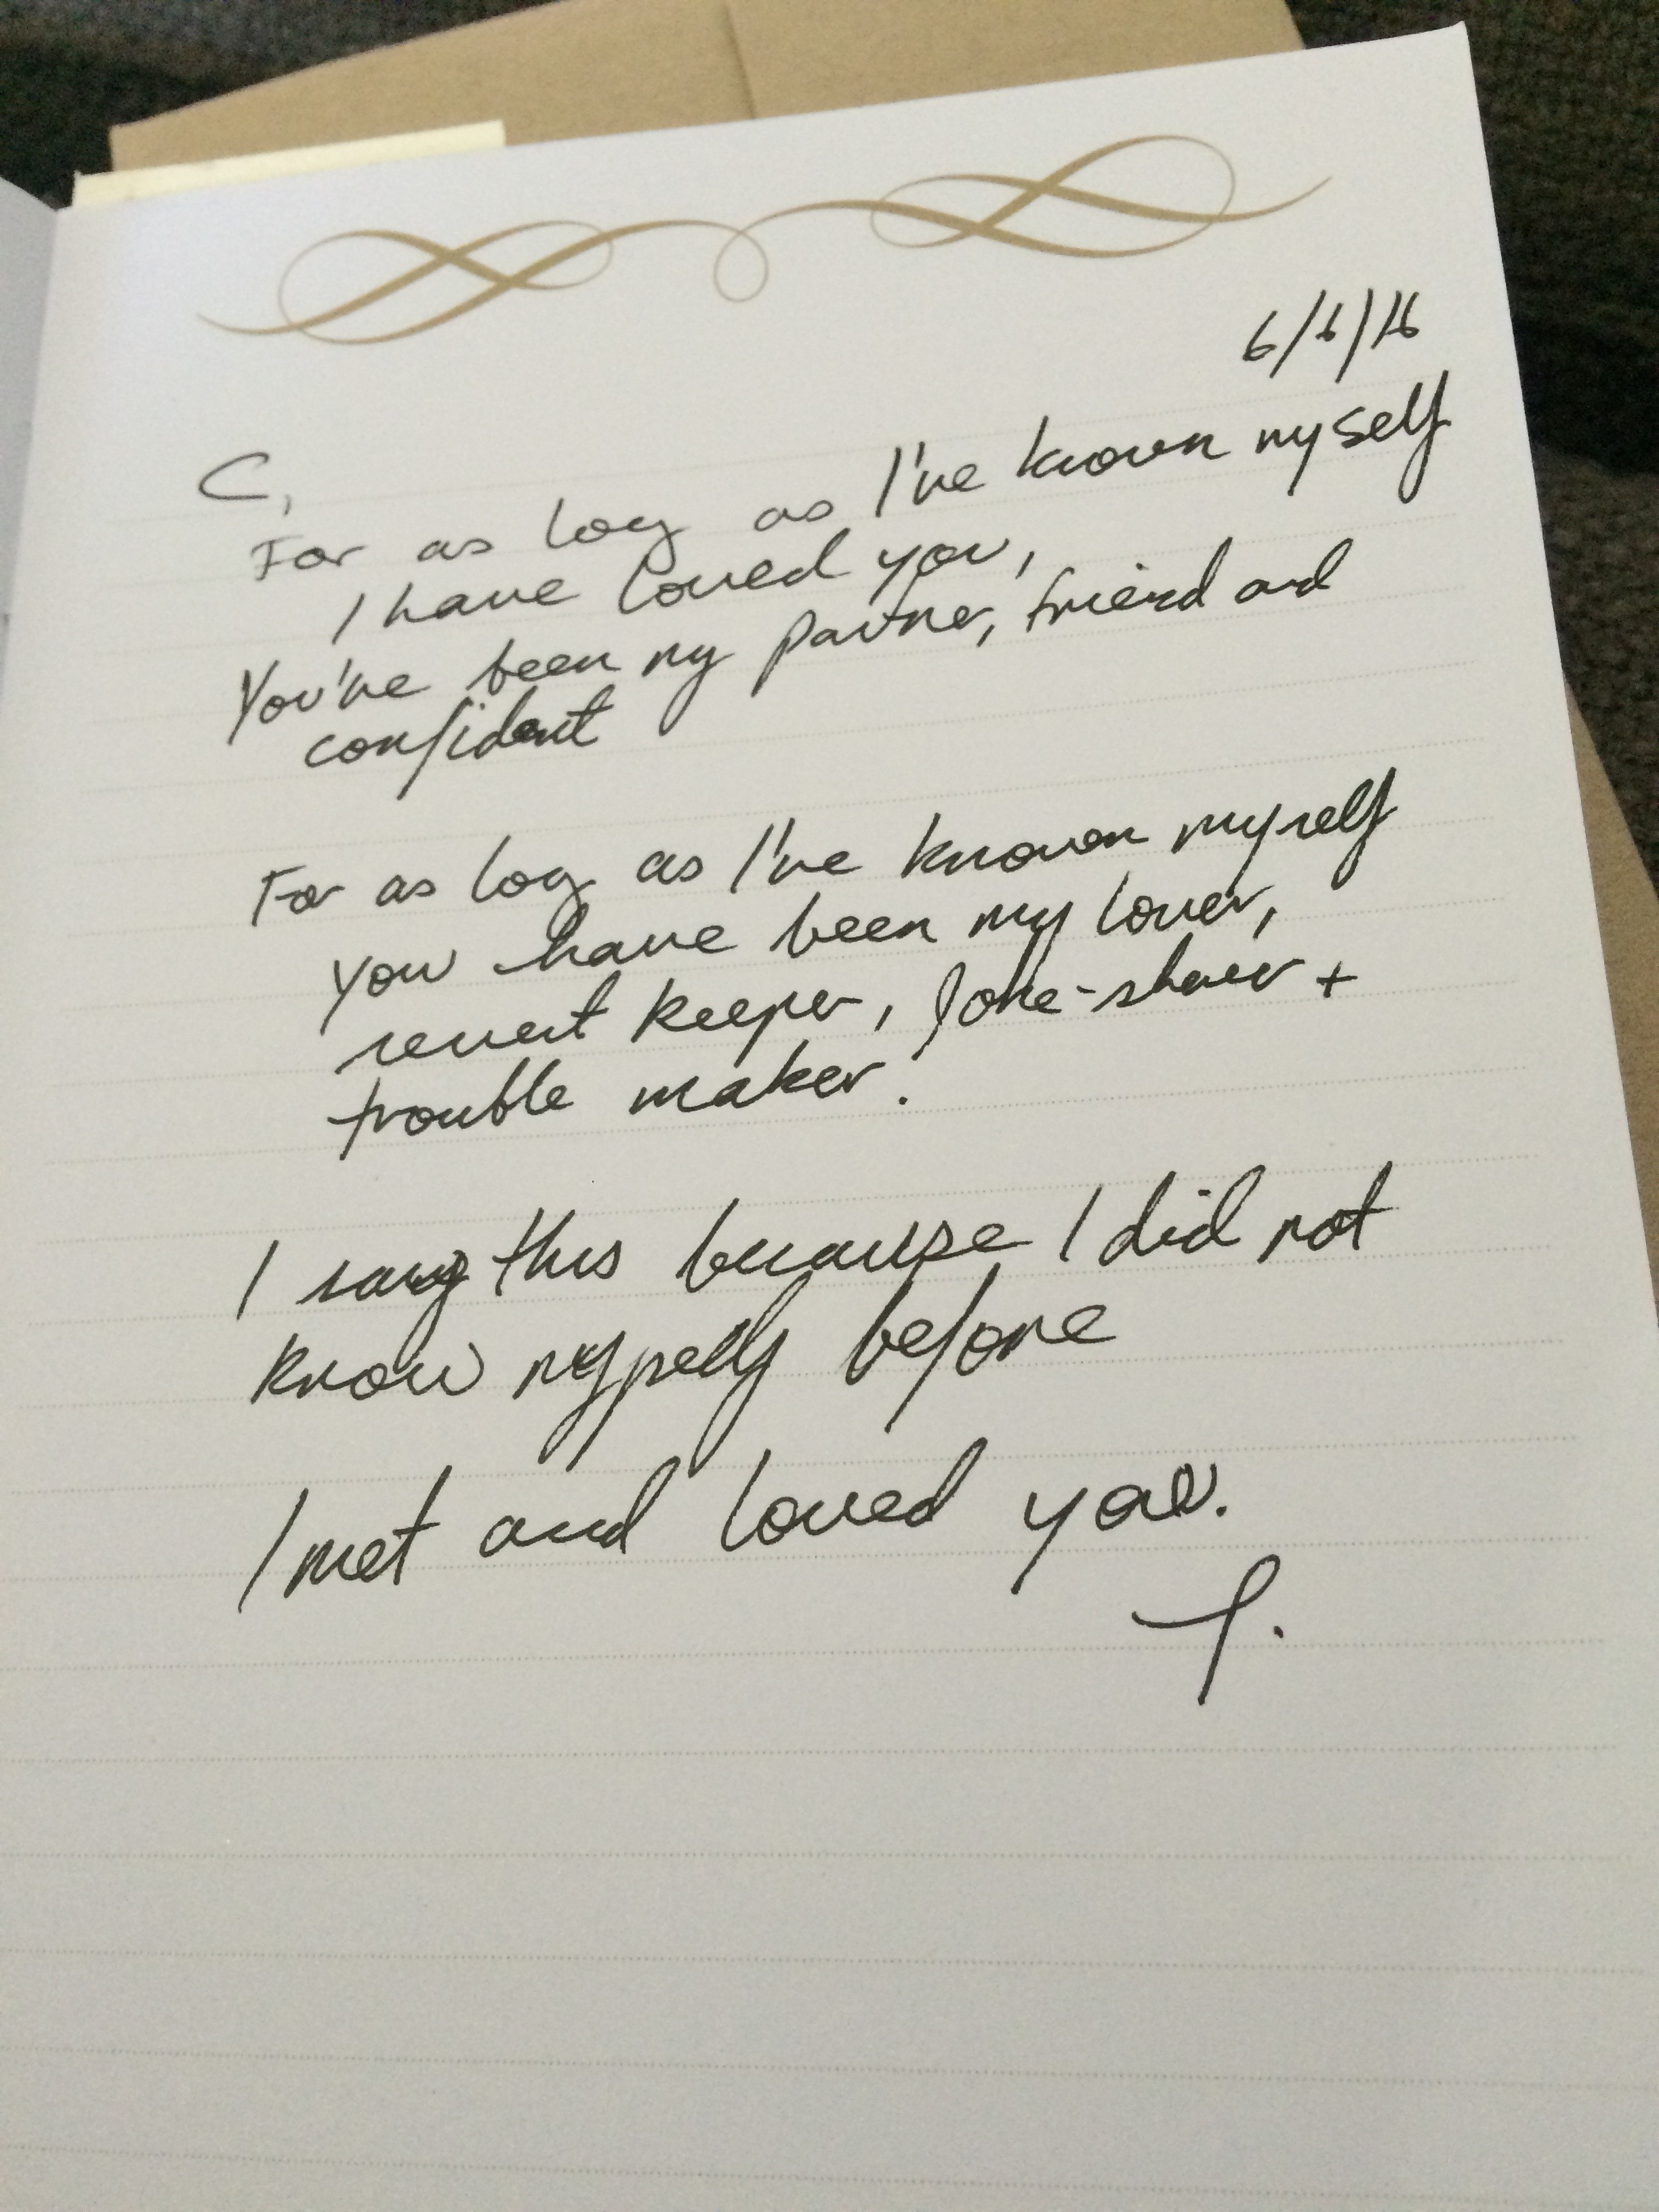 6/6/16
C,
For as long as I've known myself
I have loved you,
You've been my partner, friend and
confidant
For as long as I've known myself
you have been my lover,
secret keeper, joke-sharer +
trouble maker.
I say this because I did not
know myself before
I met and loved you.
T.